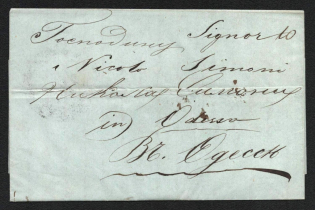 Господину Signor
Nicolo Simoni
Николаю
in Odessa
Въ Одессѣ